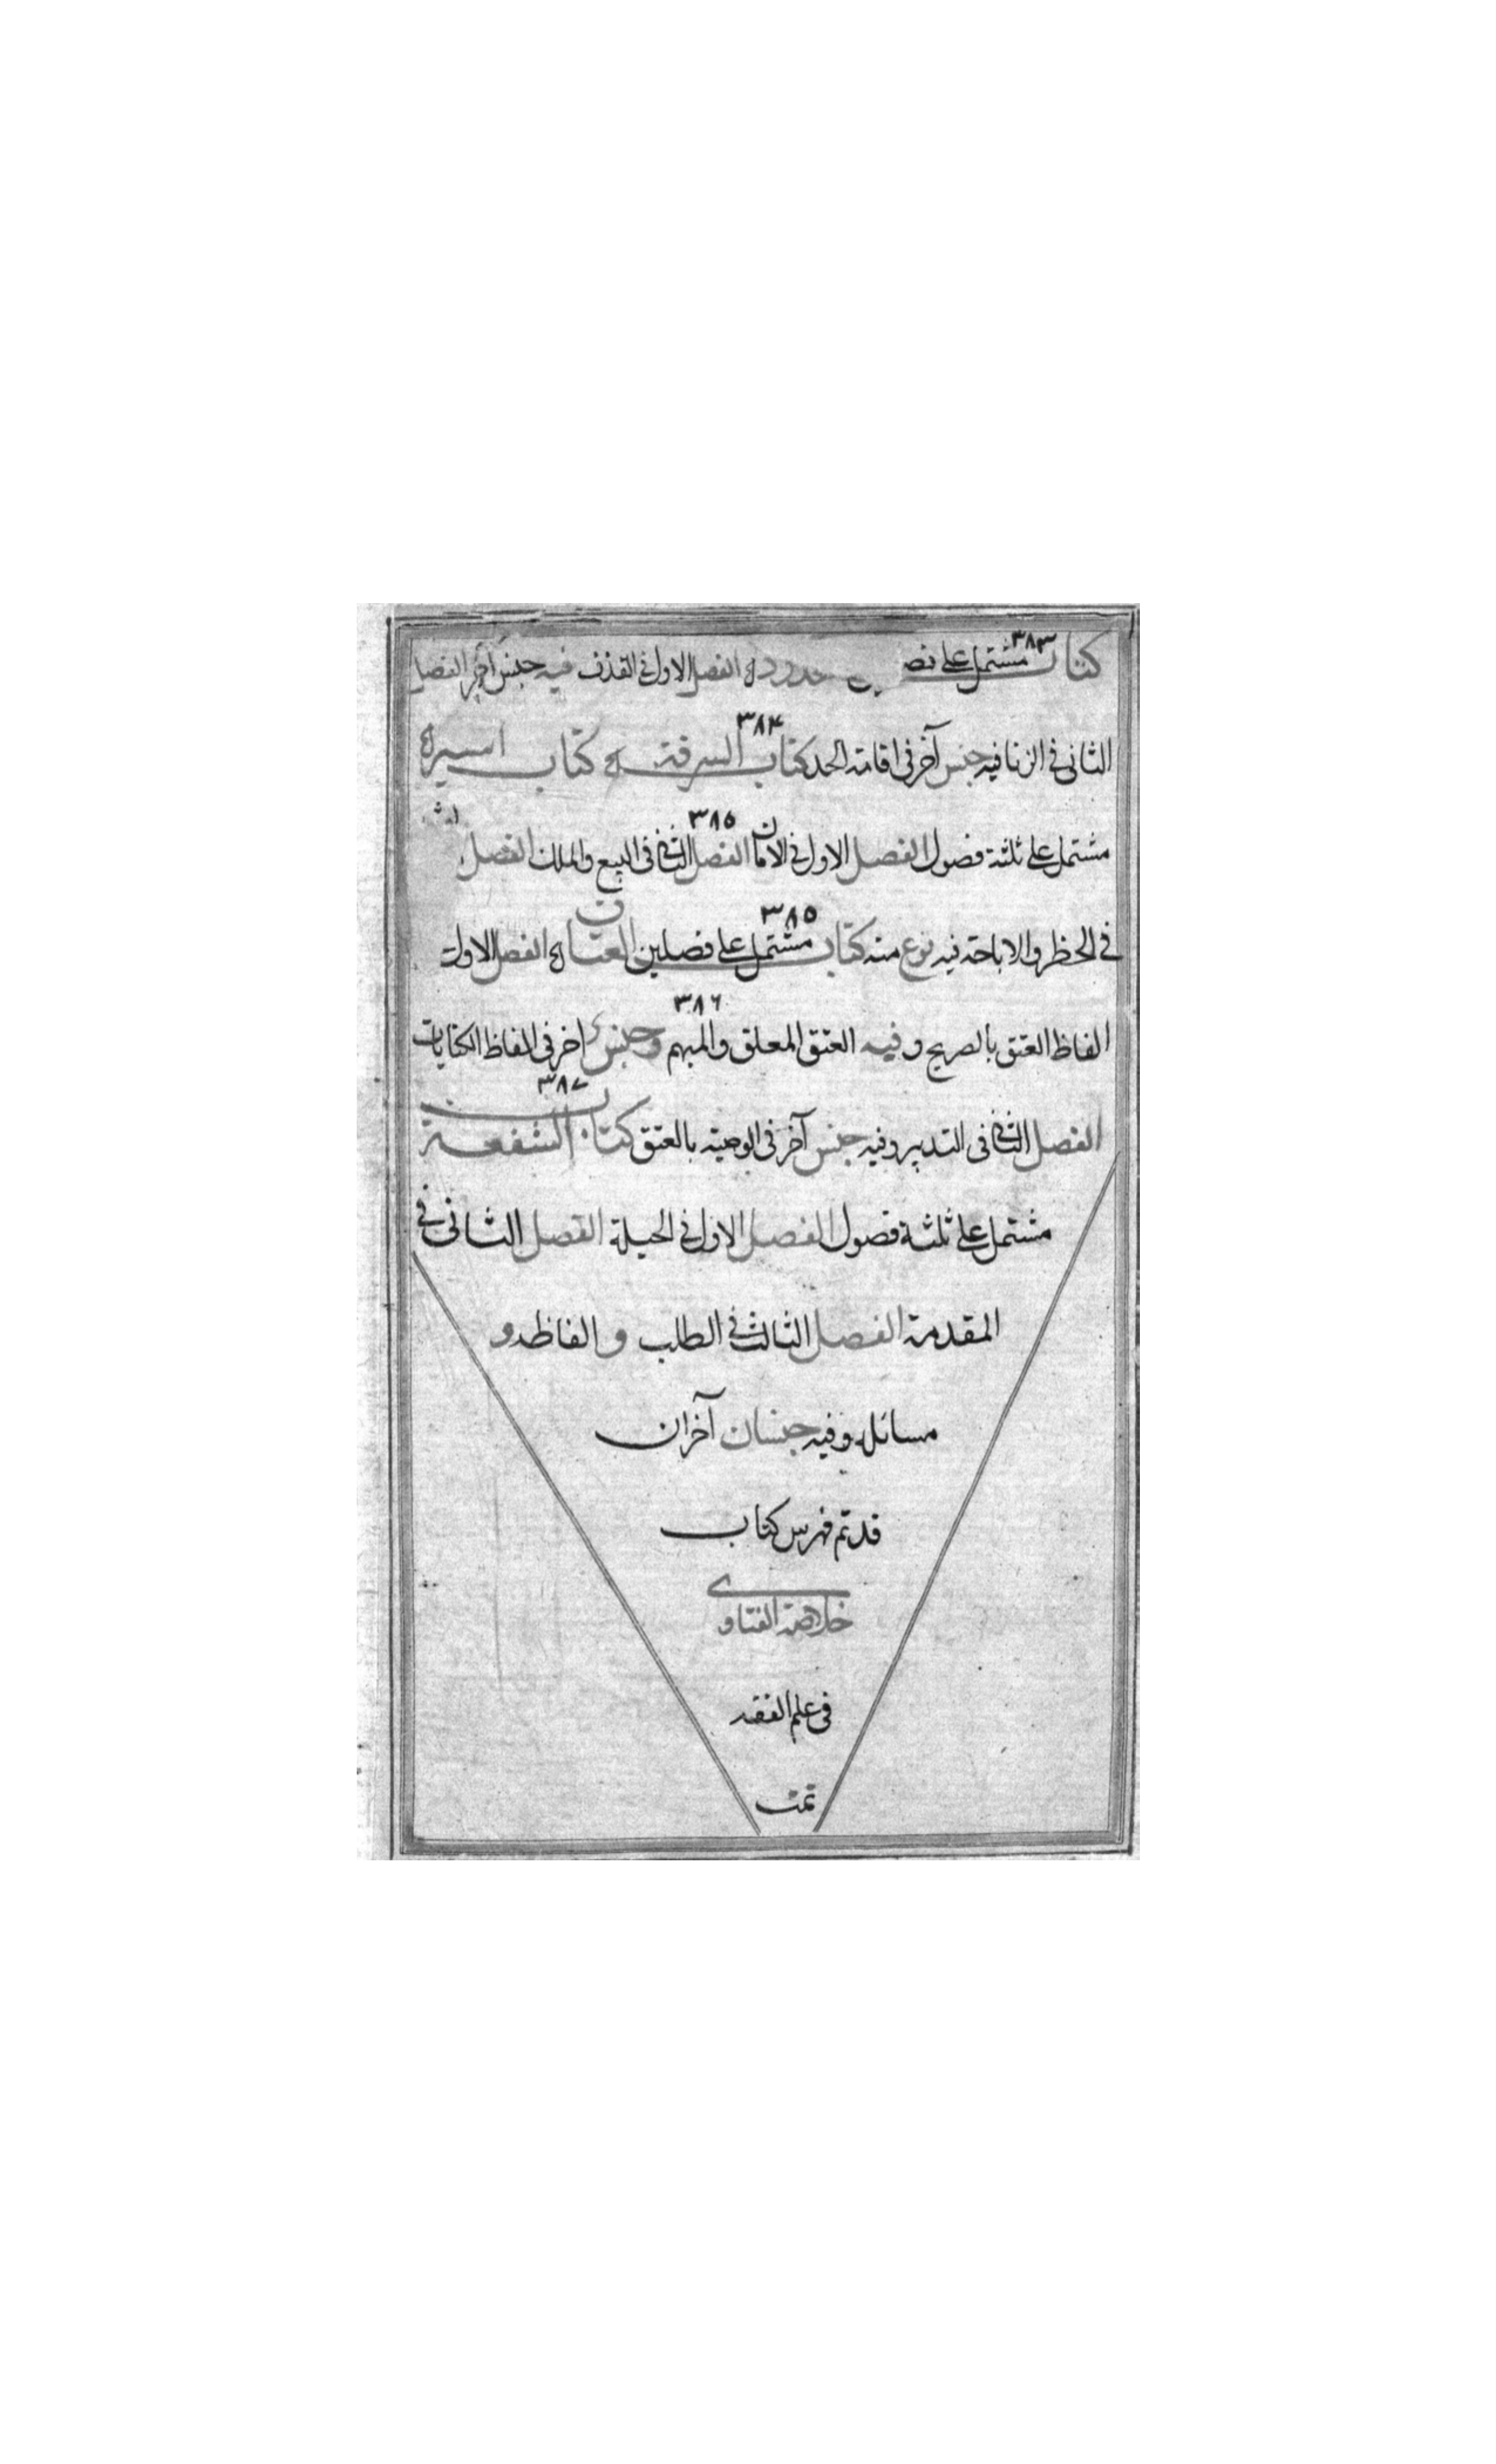 كتاب ٣٨٣ مشتمل على الحدود الفصل الاول فى القذف فيه جنس آخر الفصل
الثانى فى الزنا فيه جنس آخر فى اقامة الحد كتاب السرقة ٣٨٤ كتاب السير
مشتمل على ثلثة فصول الفصل الاول فى الامان ٣٨٥ الفصل الثانى فى البيع والملك الفصل
فى الحظر والاباحة فيه نوع منه كتاب ٣٨٥ مشتمل على فصلين العتاق الفصل الاول
الفاظ العتق بالصريح وفيه العتق المعلق والمبهم ٣٨٦ وجنس اخر فى الفاظ الكنايات
الفصل الثانى فى التدبير وفيه جنس آخر فى الوصية بالعتق كتاب ٣٨٧ الشفعة
مشتمل على ثلثة فصول الفصل الاول فى الحيلة الفصل الثانى فى
المقدمة الفصل الثالث فى الطلب و الفاظه و
مسائله وفيه جنسان آخران
قد تم فهرس كتاب
خلاصة الفتاوى
فى علم الفقه
تمت